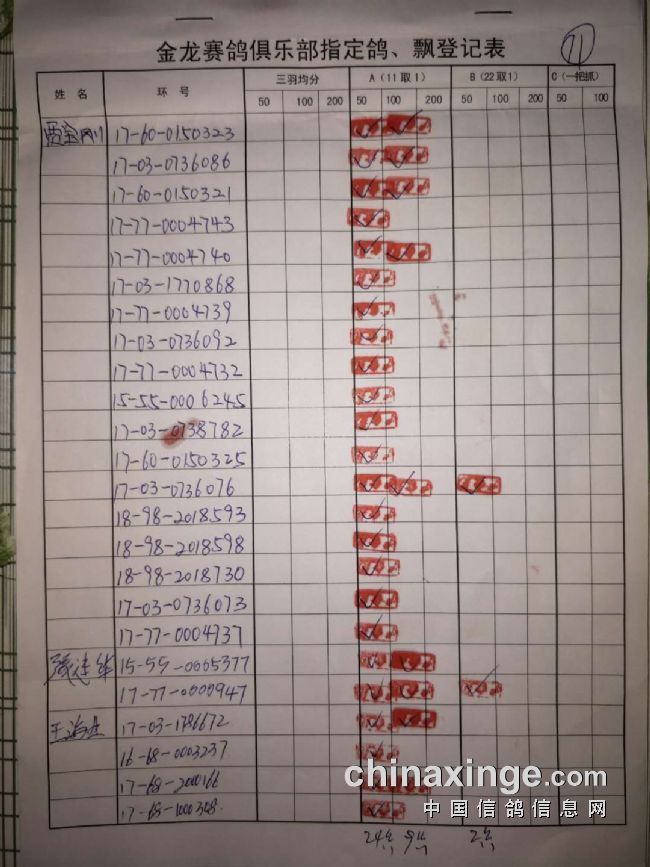 金龙赛鸽俱乐部指定鸽、飘登记表
11
姓 名 环 号 三羽均分 A（11取1） B（22取1） C（一把抓）
50 100 200 50 100 200 50 100 50 100
17-60-0150323
17-03-0736086
17-60-0150321
17-77-0004743
17-77-0004740
17-03-1770868
17-77-0004739
17-03-0736092
17-77-0004732
15-55-0006245
17-03-0738782
17-60-0150325
17-03-0736076
18-98-2018593
18-98-2018598
18-98-2018730
17-03-0736073
17-77-0004737
15-55-0005377
17-77-0000947
17-03-1786672
16-68-0003237
17-68-2000166
17-68-1000308
24 9 2
chinaxinge.com
中国信鸽信息网